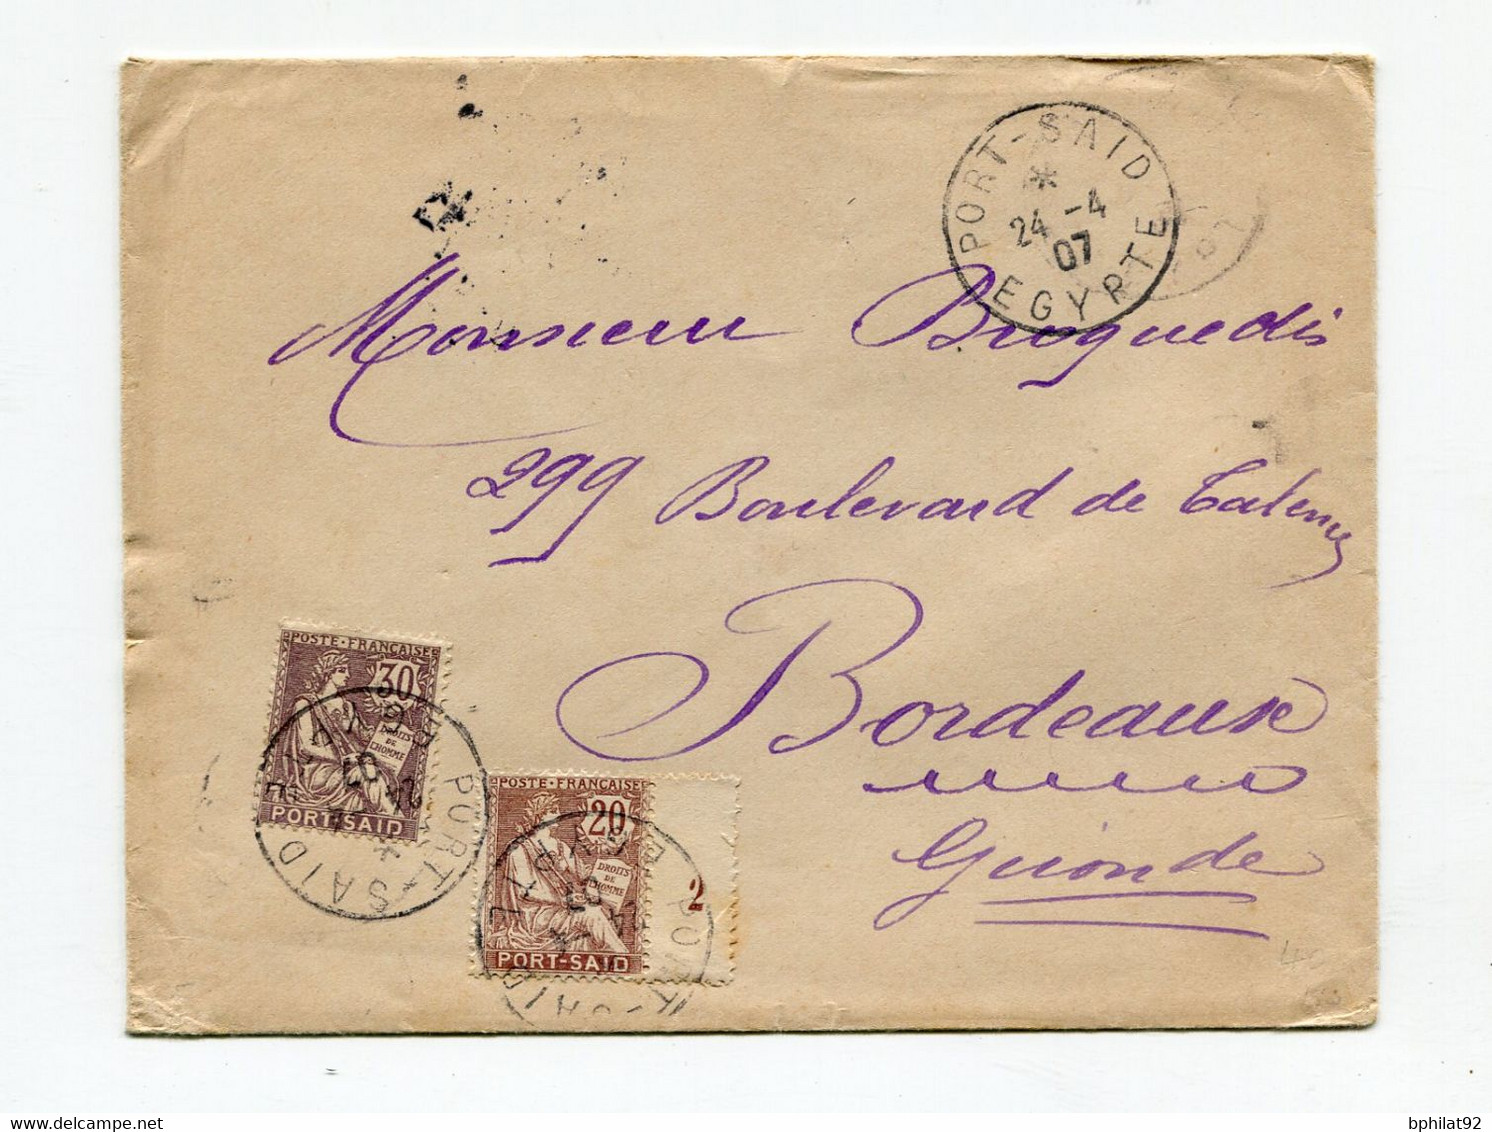 PORT-SAID
24 -4
07
EGYPTE
07
Monsieur Broquedis
299 Boulevard de Talence
Bordeaux
Gironde
POSTE·FRANÇAISE
30
DROITS
DE
L'HOMME
PORT-SAID
PORT-SAID
POSTE·FRANÇAISE
20
DROITS
DE
L'HOMME
2
PORT-SAID
PORT-SAID
40
bphilat92